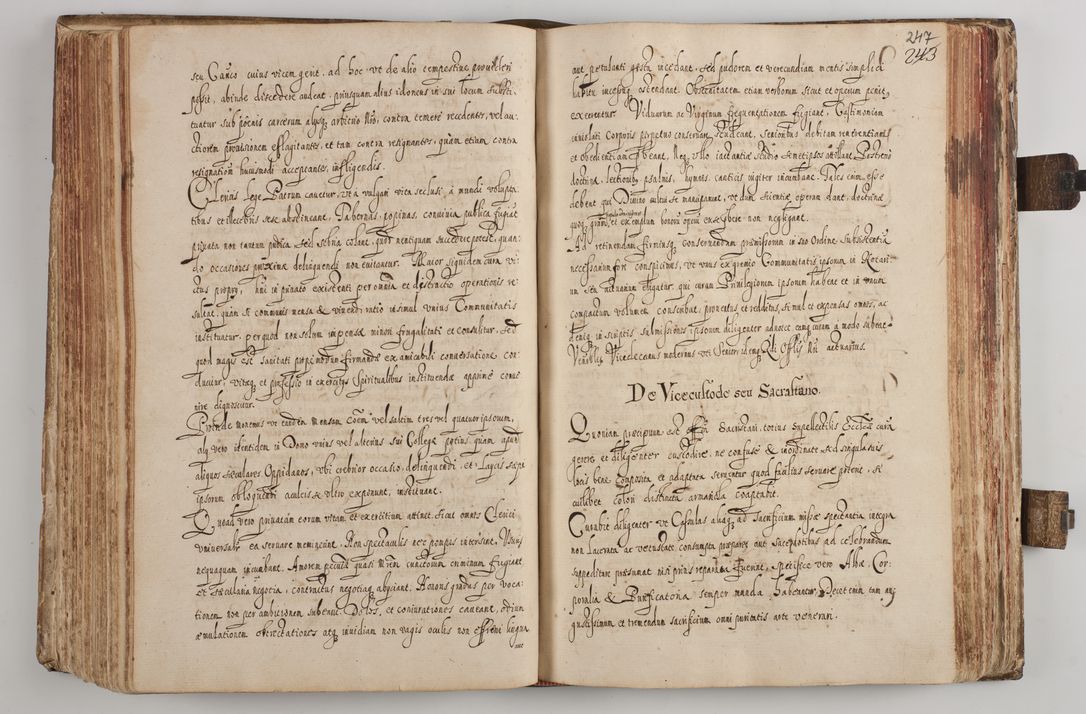 seu Canco cuius vicem gerit, ad hoc, ut de alio tempestive provideri
possit, abinde discedere audeat, priusquam alius idoneus in sui locum substi-
tuatur sub poenis carcerum alijsq arbitrio Nro, contra temere recedentes, vel au-
ctiorem provisionem efflagitantes, et tam contra resignantes, quam etiam contra
resignation huiusmodi acceptantes, infligendis.
Clericis lege Patrum cavetur, ut a vulgari vita seclusi a mundi volupta-
tibus et illecebris sese abstineant, Tabernas, popinas, convivia publica fugiat
privata non tantum pudica, sed sobria colant, quod nequaquam succedere potest, quan-
do occasiones proximae delinquendi non evitantur. Maior siquidem cura vi-
ctus proprij, sui in privato existenti per omnia et distractio operationis re-
sultat, quam si communis mensa & vivendi ratio insimul unius Communitatis
instituatur, per quod non solum impensae minori frugalitati et consulitur, sed
quod magis est sanitati proprie nondum firmandae ex amicabili conversatione con-
ducitur, vitaeq et professio in exercitijs Spiritualibus instituendae apprime conve-
nire dignoscitur.
Proinde monemus ut eandem Mensam coem vel saltim tres vel quatuor ipsorum,
alij vero itentidem in Domo unius vel alterius sui Collegae potius quam apud
aliquos saeculares Oppidanos, ubi crebrior occasio delinquendi, et Laicis saepe
ipsorum obloquendi aculeis se ultro exponunt, instituant.
Quoad vero privatam eorum vitam et exercitium attinet, sicut omnes Clerici
universalis ea servare meminerint, Non spectaculis nec pompis intersint, Usuris
nequaquam incumbant. Amorem pecuniae quasi Mrem cunctorum criminum fugiant
et Saecularia negotia, contractus negotiaq abijciant. Honoris gradus per voca-
tionem non per ambitionem subeant. Dolos, et coniurationes caveant, odium
aemulationem obtrectationes atq invidiam non vagis oculis non effreni lingua
aut
247
243
aut petulanti gestu incedant, sed pudorem et verecundiam mentis simplici
habitu incessuq ostendant. Obscenitatem etiam verborum sicut et operum penitus
execrentur. Viduarum ac Virginum frequentationem fugiant. Castimoniam
inviolati Corporis perpetuo conservare studeant, Senioribus debitam reverentiam
et obedientiam praebeant, Neq ullo iactantiae studio semetipsos attollant. Postremo
doctrina, lectionibus, psalmis, hymnis, canticis iugiter incumbant. Tales enim esse
debent qui Divino cultui se mancipant, ut dum scientiae operam dant, doctrinae
quoq gram et exemplum bonorum operum ex se populo non negligant.
Ad retinendam firmiusq conservandam praemissorum in suo Ordine subsistentia
necessarium fore conspicimus, ut unus ex gremio Communitatis ipsorum in Notari-
um seu actuarium eligatur, qui curam Privilegiorum ipsorum habeat et in unum
compactum volumen conscribat, proventus et redditus, simul et expensas omnes, ac
deniq in scriptis submissionis ipsorum diligenter adnotet cuius curam a modo subeat
Venblis Vicedecanus modernus uti Senior idemq Rdi Offlis Nri actuarius.
De Vicecustode seu Sacristano.
Quoniam praecipuum est offm Sacristani totius supellectilis Ecclae curam
gerere et diligenter custodire, ne confuse & inordinate sed singula suis
locis bene composita et adaptata serventur quod facilius servare poterit, si
cuilibet colori distincta armariola coaptabit.
Curabit diligenter ut Casulas aliaq ad Sacrificium missae spectantia integra
non lacerata ac vetustate consumpta praeparet, aut Sacerdotibus ad celebrandum
suppeditare praesumat nisi prius reparata fuerint, specifice vero Albae, Cor-
poralia & Purificatoria semper munda habeantur. Decet enim tam au-
gustissimum et tremendum sacrificium omni puritatis arte venerari.